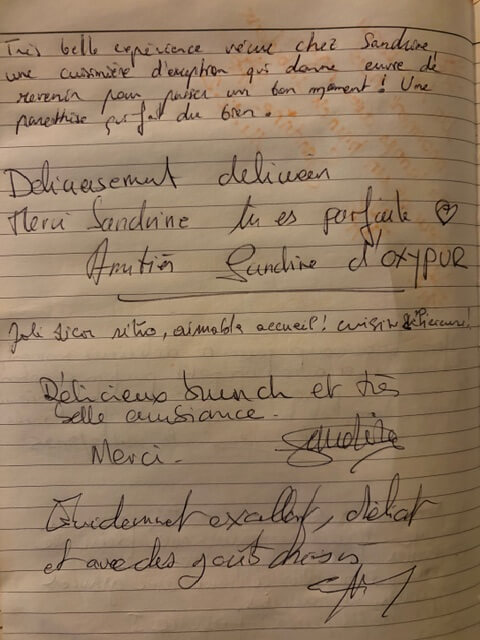 Très belle expérience vécue chez Sandrine,
une cuisinière d'exception qui donne envie de
revenir pour passer un bon moment ! Une
parenthèse qui fait du bien.
Délicieusement délicieux
Merci Sandrine tu es parfaite ♡
Amitiés Sandrine d'OXYPUR
Joli décor rétro, aimable accueil ! cuisine
Délicieux brunch et très
belle ambiance.
Merci.
Evidemment excellent, délicat
et avec des goûts choisis